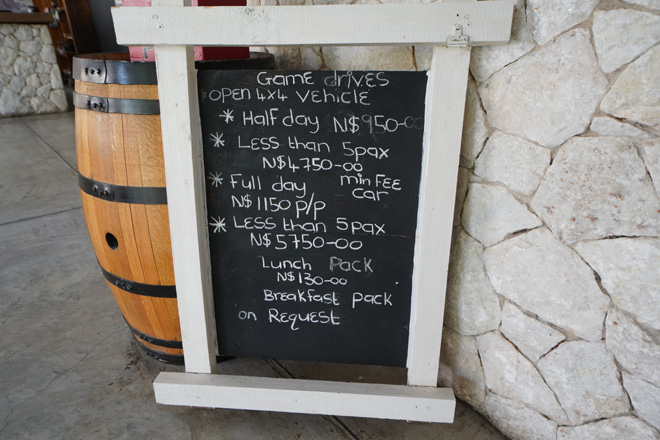 Game drives
open 4x4 vehicle
* Half day N$950-00
* Less than 5pax
N$4750-00
* Full day min FEE
N$1150 p/p car
* Less than 5pax
N$5750-00
Lunch Pack
N$130-00
Breakfast pack
on Request